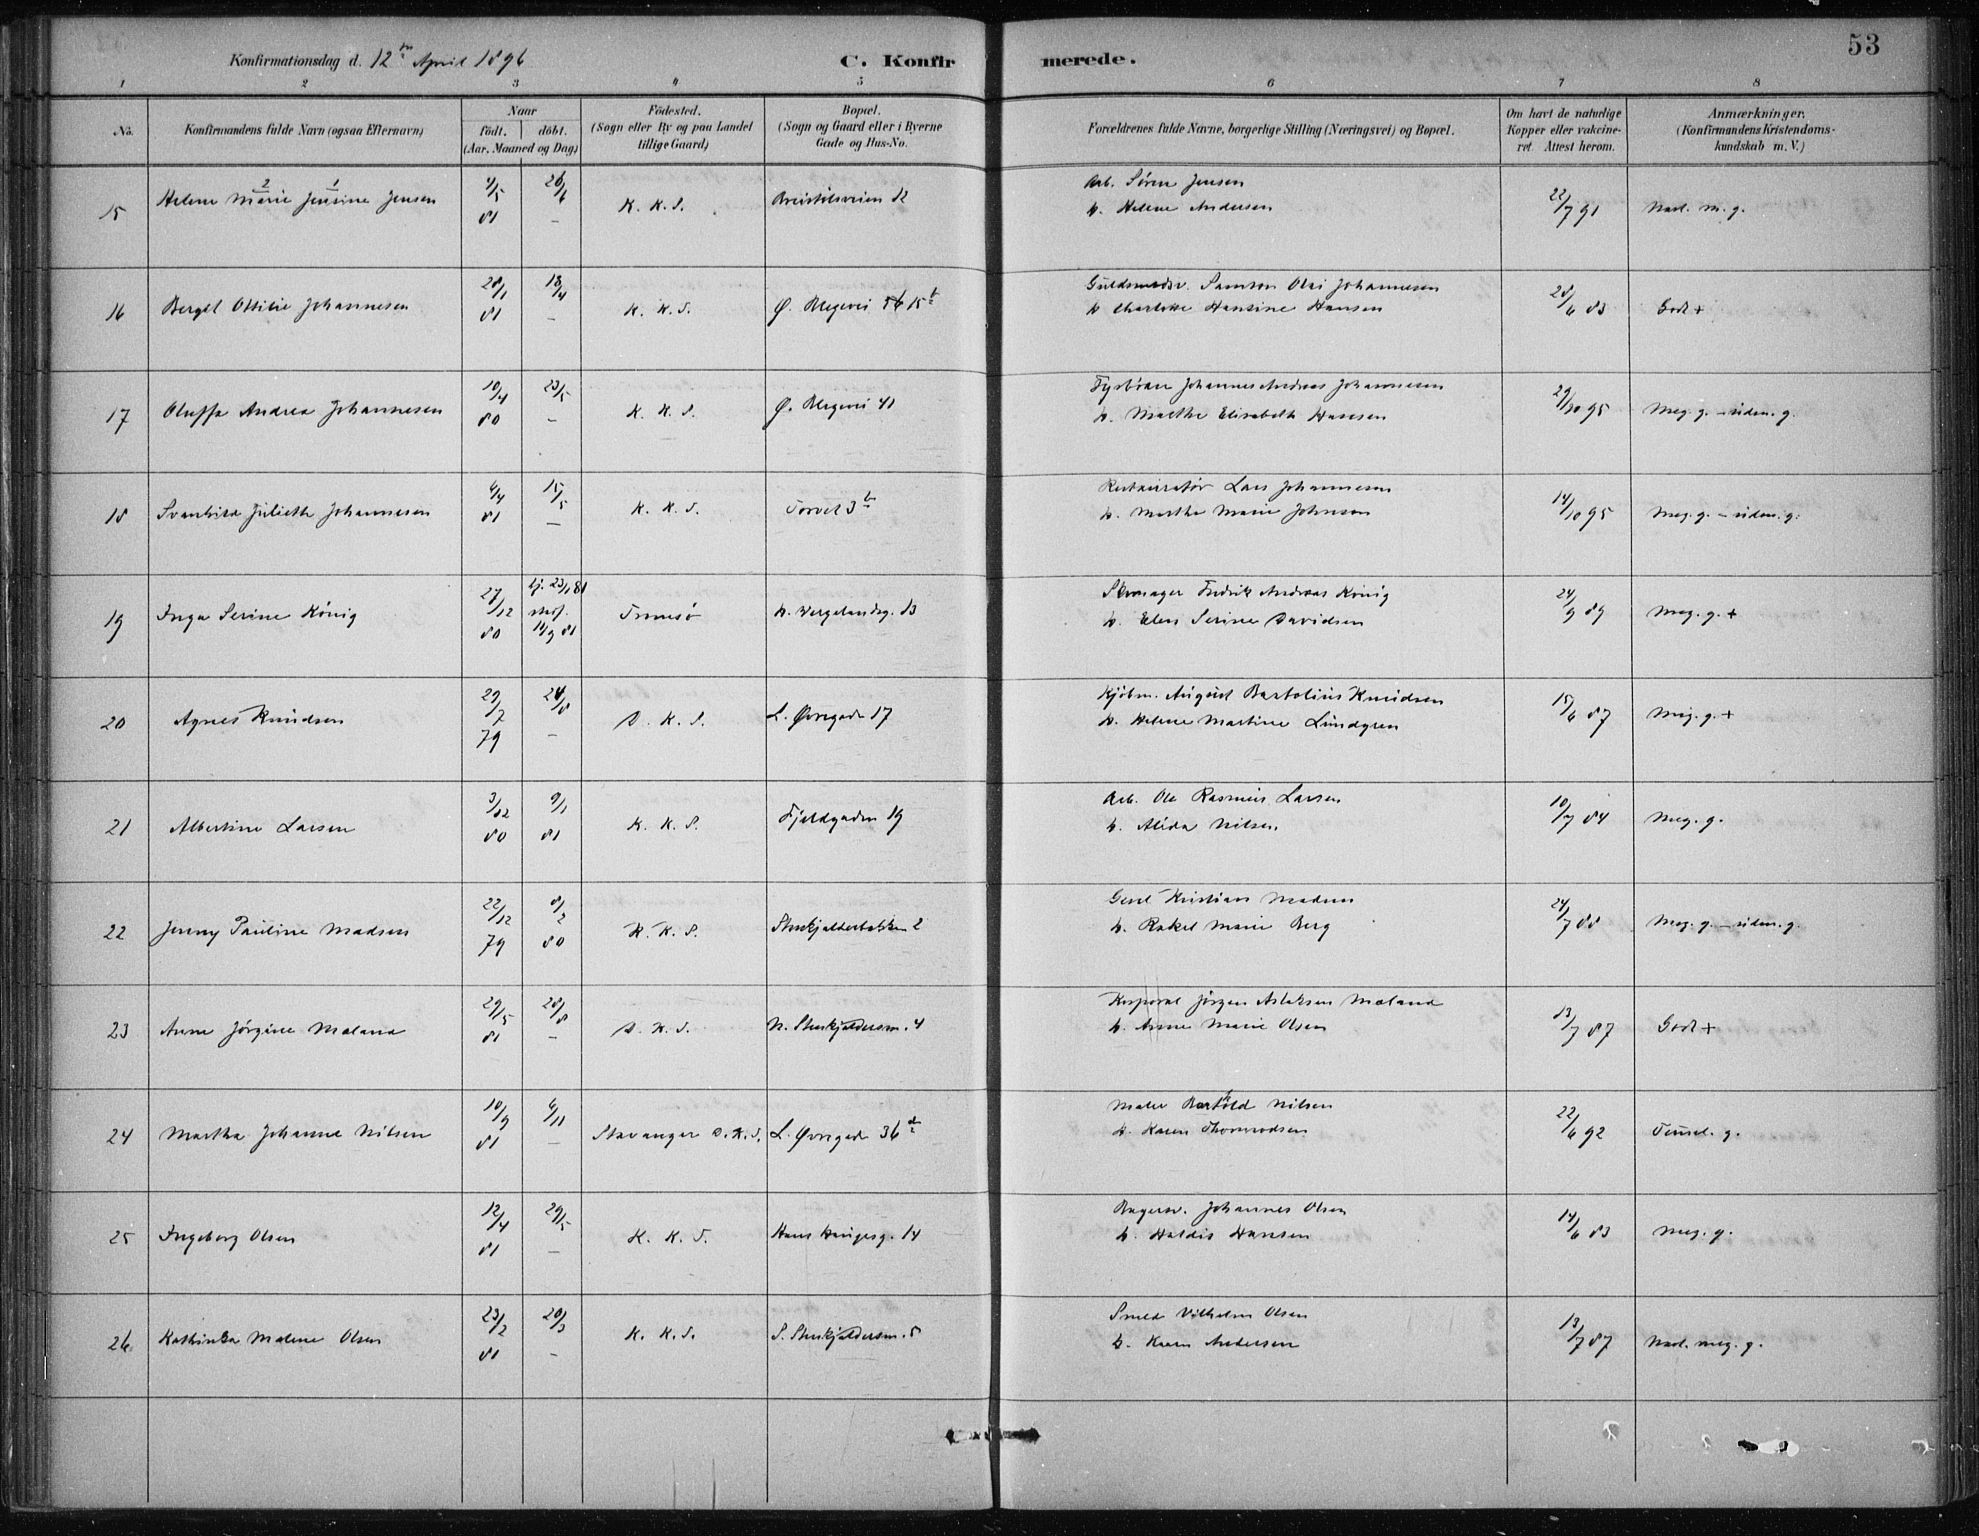 Konfirmationsdag d. 12te April 1896
C. Konfirmerede.
53
1 2 3 4 5 6 7 8
No.
Konfirmandens fulde Navn (ogsaa Efternavn)
Naar
födt. döbt.
(Aar, Maaned og Dag)
Födested.
(Sogn eller By og paa Landet
tillige Gaard)
Bopæl.
(Sogn og Gaard eller i Byerne
Gade og Hus-No.
Forældrenes fulde Navne, borgerlige Stilling (Næringsvei) og Bopæl.
Om havt de naturlige
Kopper eller vakcine-
ret. Attest herom.
Anmærkninger.
(Konfirmandens Kristendoms-
kundskab m. V.)
15 Helene Marie Jensine Jensen 81 26/6 – K. K. S. 12
Arb. Sören Jensen
h. Helene Andersen
22/7 91 Nærl. m. g.
16 Bergit Ottilie Johannesen 28/1 81 18/4 – K. K. S. Ø. Blegevei 15b
Guldsmedsv. Samson Olai Johannesen
h. Charlotte Hansine Hansen
28/6 83 Godt +
17 Oluffa Andrea Johannesen 10/4 80 23/5 – K. K. S. Ø. Blegevei 41
Fyrböder Johannes Andreas Johannesen
h. Marthe Elisabeth Hansen
29/10 95 Meg. g. – uden. g.
18 Svanhild Juliette Johannesen 4/4 81 15/5 – K. K. S. Torvet 3b
Restauratör Lars Johannesen
h. Marthe Marie Johnson
14/10 95 Meg. g. – uden. g.
19 Inga Serine König 27/12 80 hj. 23/1 81 stadf. 11/9 81 Tromsö H. Wergelandsg. 13
Skomager Fredrik Andreas König
h. Elen Serine Davidsen
24/9 89 Meg. g. +
20 Agnes Knudsen 29/7 79 24/8 – D. K. S. L. Øvregade 17
Kjöbm. August Bartolius Knudsen
h. Helene Martine Lundgren
15/6 87 Meg. g. +
21 Albertine Larsen 3/12 80 9/1 81 K. K. S. Fjeldgaden 19
Arb. Ole Rasmus Larsen
h. Alida Nilsen
10/7 84 Meg. g.
22 Jenny Pauline Madsen 22/12 79 8/2 80 K. K. S. Stenkjelderbakken 2
Kristian Madsen
h. Rakel Marie Berg
24/7 88 Meg. g. – uden. g.
23 Anne Jörgine Mæland 29/5 81 28/8 – D. K. S. N. Stenkjeldersm. 4
Korporal Jörgen Aslaksen Mæland
h. Anne Marie Olsen
13/7 87 Godt +
24 Martha Johanne Nilsen 10/9 81 6/11 – Stavanger D. K. S. L. Øvregade 36d
Maler Barthold Nilsen
h. Karen Thorvaldsen
22/6 92 g.
25 Ingeborg Olsen 12/4 81 29/5 – K. K. S. Hans Haugesg. 14
Bagersv. Johannes Olsen
h. Haldis Hansen
14/6 83 Meg. g.
26 Kathinka Malene Olsen 23/2 81 20/3 – K. K. S. S. Stenkjeldersm. 5
Smed Vilhelm Olsen
h. Karen Andersen
13/7 87 Nærl. meg. g.